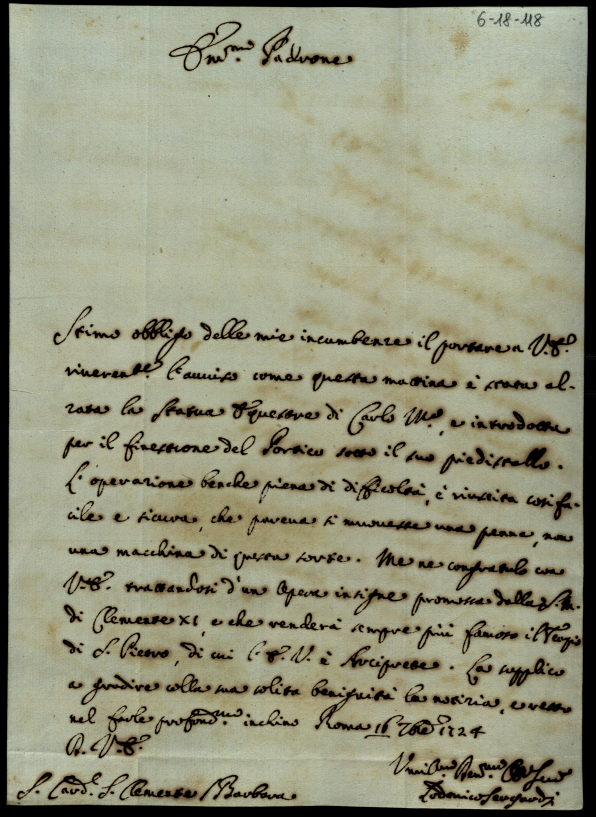 6-18-118
Em.mo Padrone
Stimo obbligo delle mie incumbenze il portare a V.E.
riverente l'avviso come questa mattina è stata al-
zata la Statua Equestre di Carlo M.o, e introdotta
per il finestrone del Portico sotto il suo piedistallo.
L'operazione benche piena di difficoltà, è riuscita cosi fa-
cile e sicura, che pareva si muovesse una penna, non
una macchina di questa sorte. Me ne congratulo con
V.E. trattandosi d'un Opera insigne promossa dalla S.M.
di Clemente XI, e che renderà sempre piu famoso il Tempio
di S. Pietro, di cui l'E.V. è Arciprete. La supplico
a gradire colla sua solita benignità la notizia, e resto
nel farle profond.mo inchino Roma 16 1724
D. V.E.
S. Card. S. Clemente Barbara
Umil.mo Dev.mo
Lodovico Sergardi